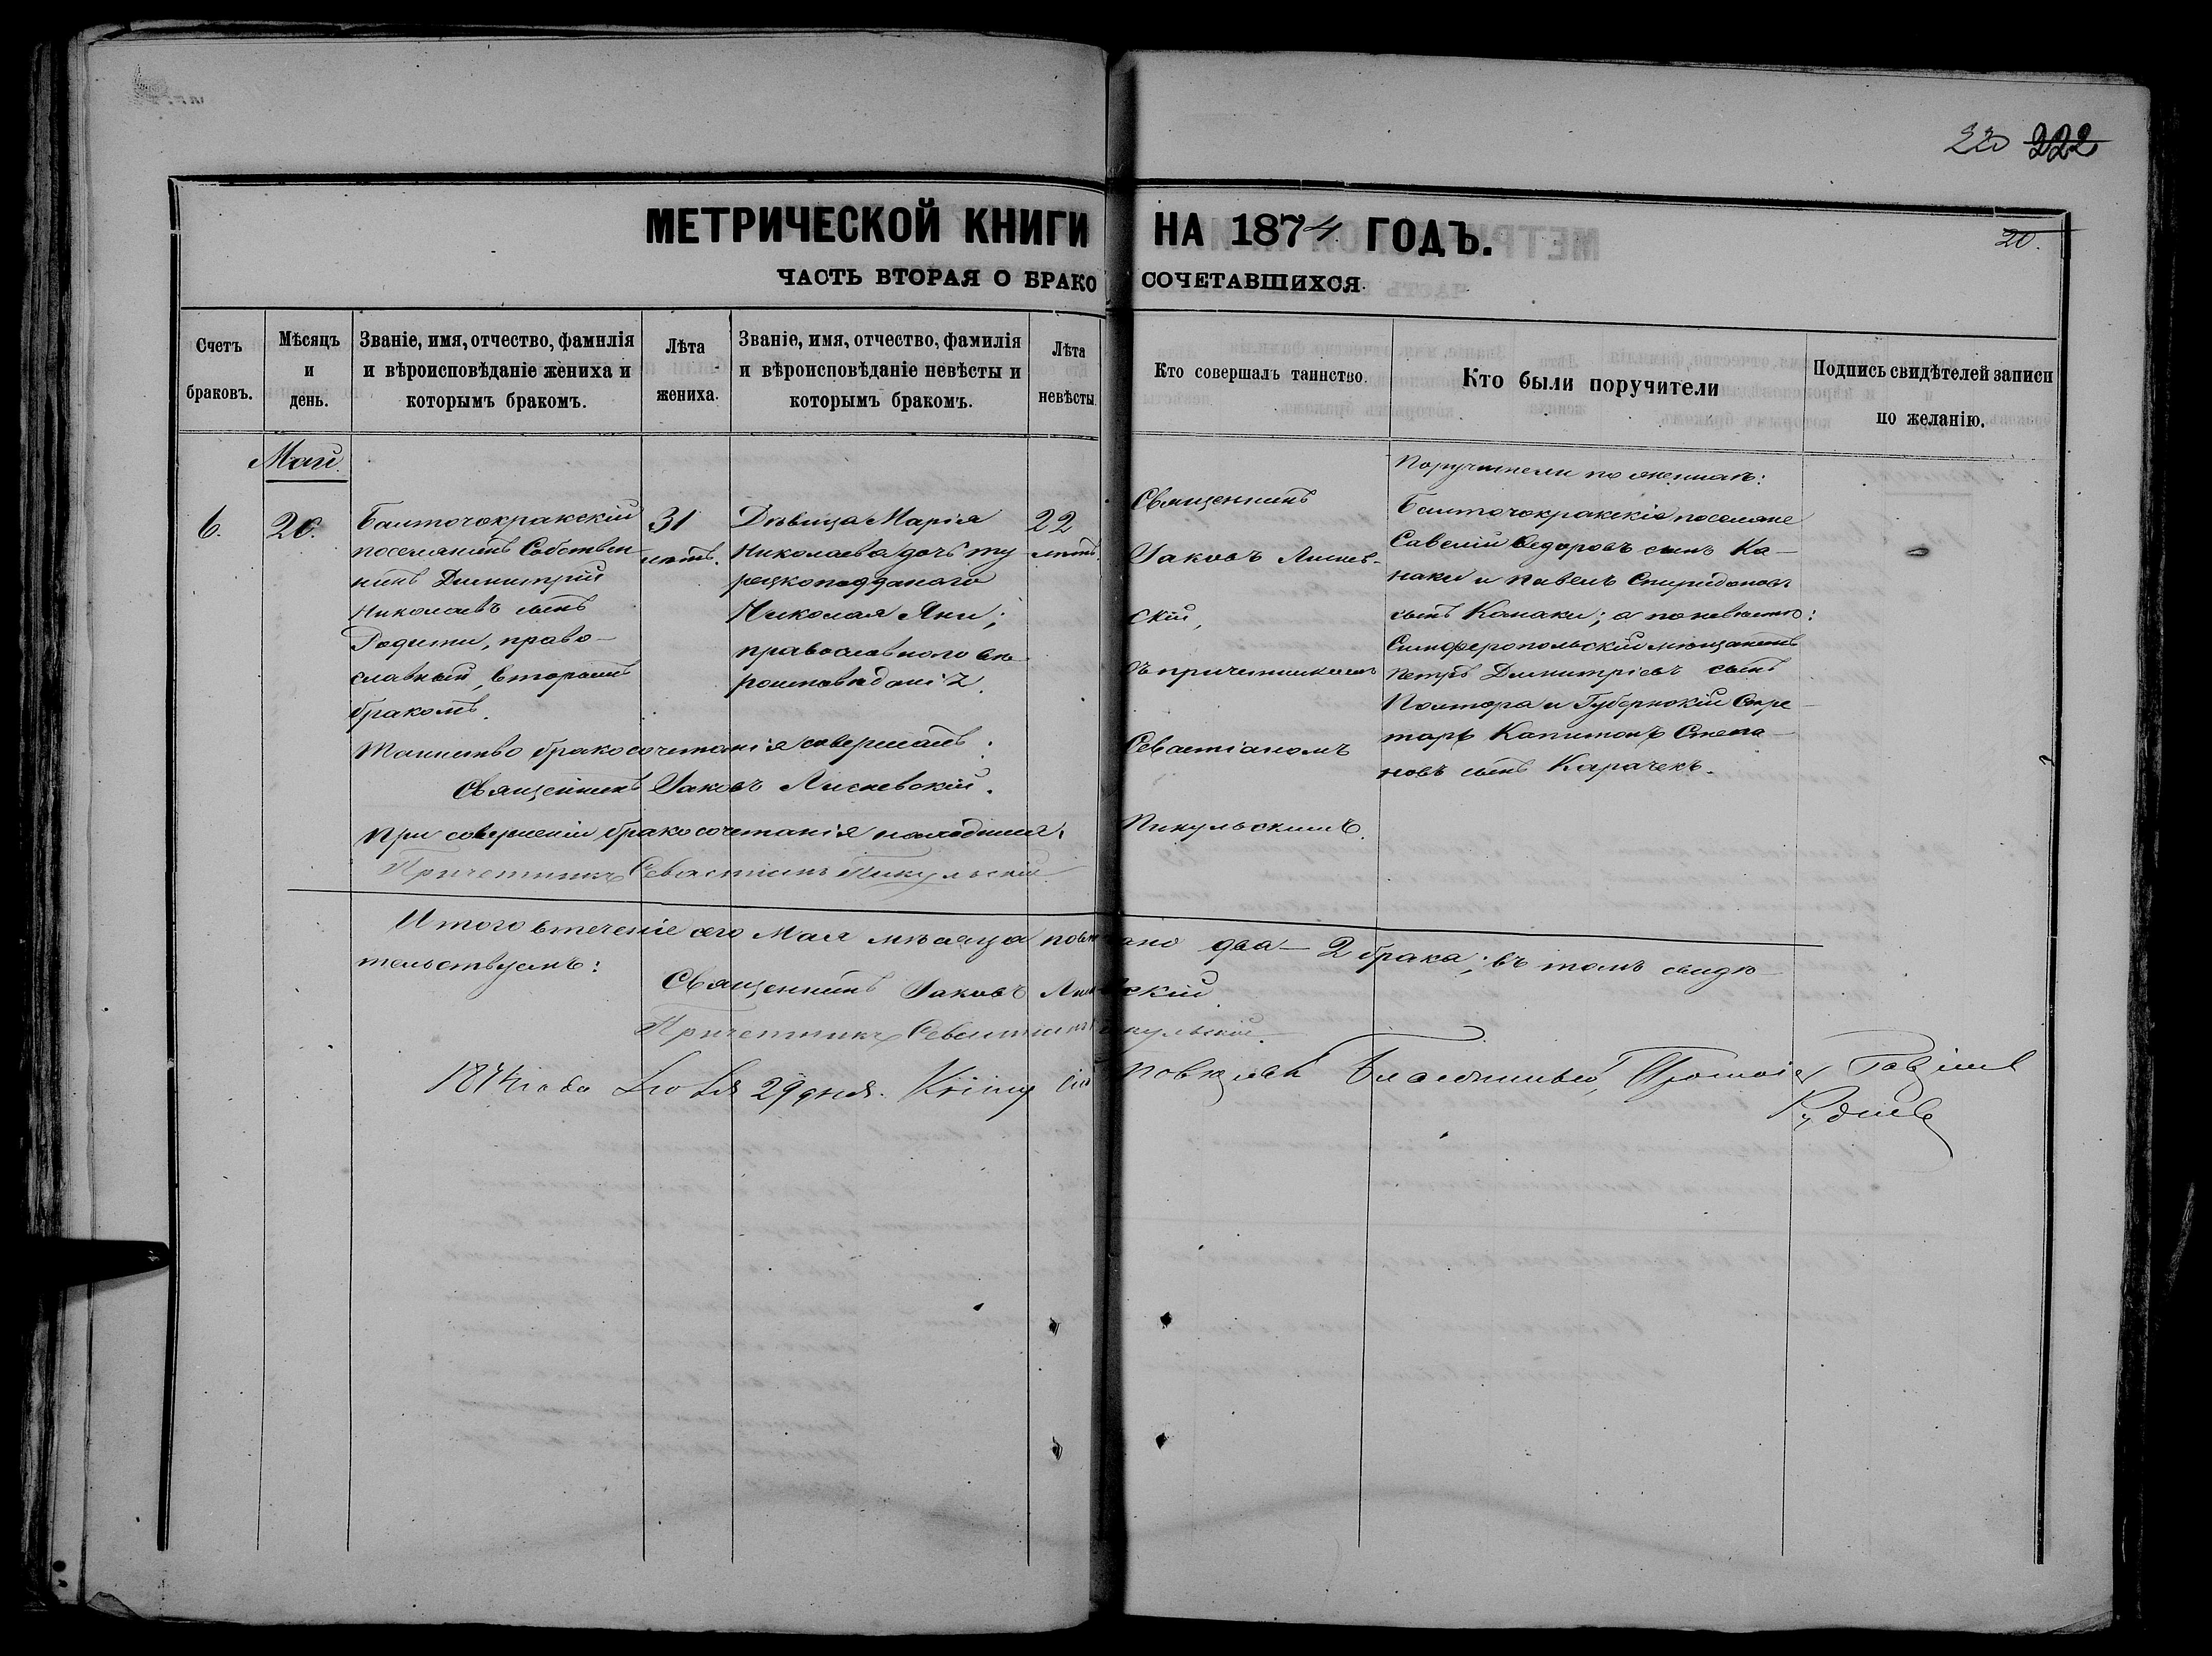 220 222
МЕТРИЧЕСКОЙ КНИГИ НА 1874 ГОДЪ.
20.
ЧАСТЬ ВТОРАЯ О БРАКОСОЧЕТАВШИХСЯ.
Счетъ браковъ.
Мѣсяцъ и день.
Званіе, имя, отчество, фамилія
и вѣроисповѣданіе жениха и
которымъ бракомъ.
Лѣта жениха.
Званіе, имя, отчество, фамилія
и вѣроисповѣданіе невѣсты и
которымъ бракомъ.
Лѣта невѣсты.
Кто совершалъ таинство.
Кто были поручители
Подпись свидѣтелей записи
по желанію.
Май.
6.
20.
Баиточокракскій
поселянинъ Собствен-
никъ Димитрій
Николаевъ сынъ
православный, вторымъ
бракомъ.
31
лѣтъ.
Дѣвица Марія
Николаева дочь ту
рецкоподданаго
Николая Яни;
православного вѣ
роисповѣданія.
22
лѣтъ.
Священникъ
Іаковъ Лиснев-
скій,
съ причетникомъ
Севастіаномъ
Пикульскимъ.
Поручители по женихѣ:
Баиточокракскіе поселяне
Савелій Ѳедоровъ сынъ Ка-
наки и Павелъ Спиридоновъ
сынъ Канаки; а по невѣстѣ:
Симферопольскій мѣщанинъ
Петръ Димитріевъ сынъ
и Губернскій Секре-
тарь Капитонъ Степа-
новъ сынъ Карачекъ.
Таинство бракосочетанія совершалъ:
Священникъ Іаковъ Лисневскій.
При совершеніи бракосочетанія находился:
Причетникъ Севастіанъ Пикульскій
Итого втеченіе сего Мая мѣсяца повѣнчано два – 2 брака; въ томъ свидѣ
тельствуемъ:
Священникъ Іаковъ Лисневскій.
Причетникъ Севастіанъ Пикульскій.
1874 года 29 дня. Книгу сію